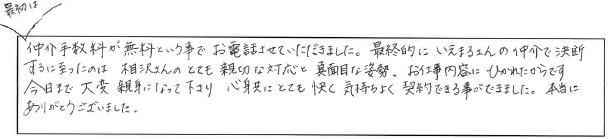 最初は
仲介手数料が無料という事でお電話させていただきました。最終的にいえまるさんの仲介で決断
するに至ったのは 相沢さんのとても親切な対応と真面目な姿勢、お仕事内容にひかれたからです
今日まで大変親身になって下さり 心身共にとても快く気持ちよく契約できる事ができました。本当に
ありがとうございました。